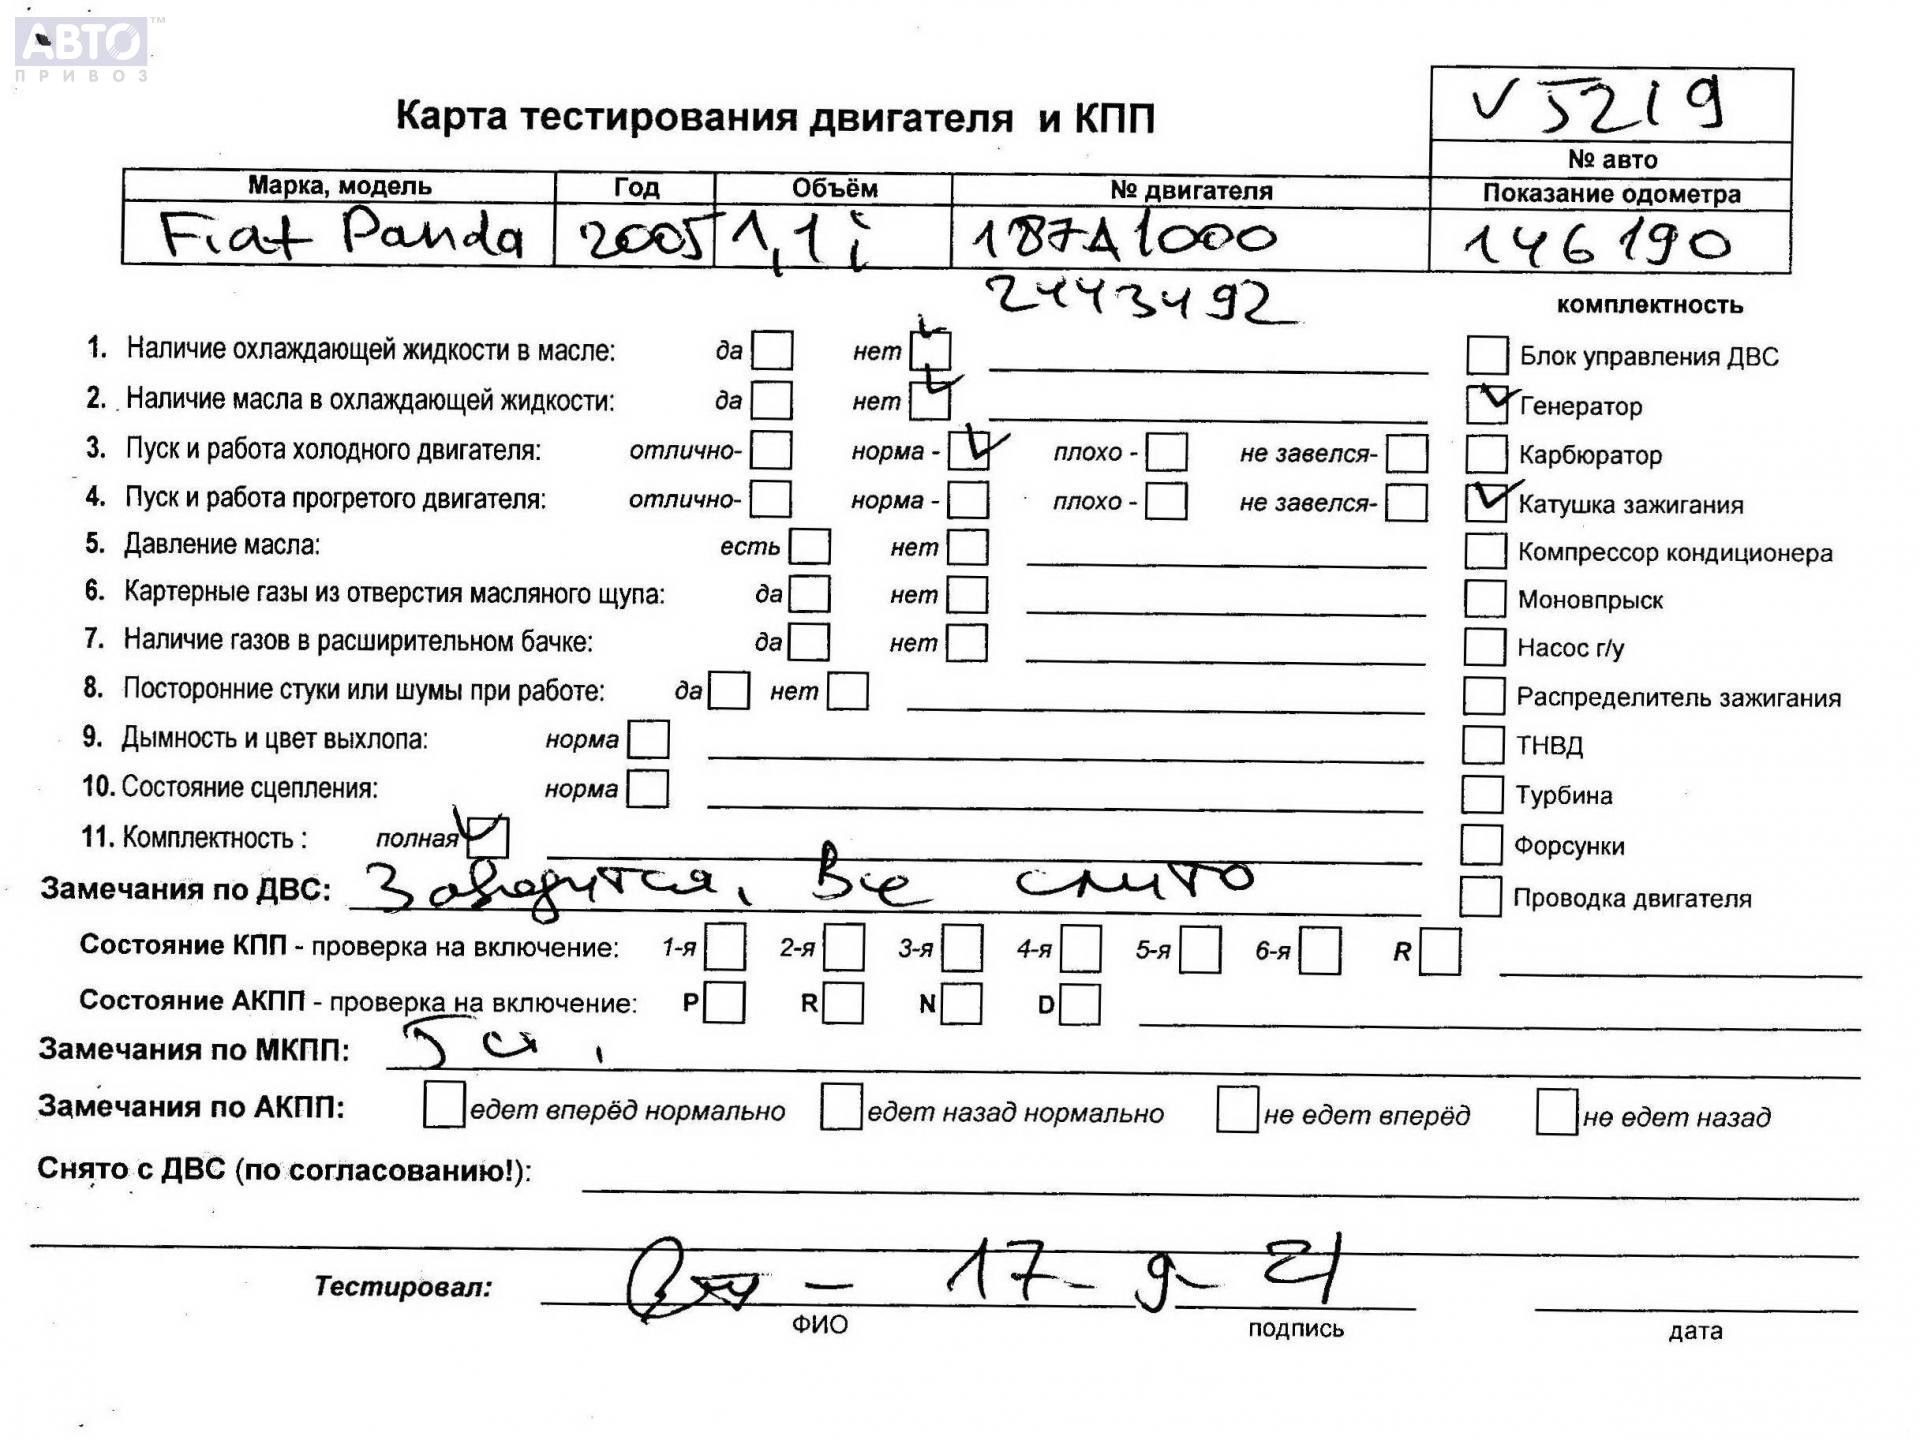 АВТО™
ПРИВОЗ
V5219
Карта тестирования двигателя и КПП
№ авто
Марка, модель Год Объём № двигателя Показание одометра
Fiat Panda 2005 1,1 i 187A1000 146190
2443492
комплектность
1. Наличие охлаждающей жидкости в масле: да нет Блок управления ДВС
2. Наличие масла в охлаждающей жидкости: да нет Генератор
3. Пуск и работа холодного двигателя: отлично- норма - плохо - не завелся- Карбюратор
4. Пуск и работа прогретого двигателя: отлично- норма - плохо - не завелся- Катушка зажигания
5. Давление масла: есть нет Компрессор кондиционера
6. Картерные газы из отверстия масляного щупа: да нет Моновпрыск
7. Наличие газов в расширительном бачке: да нет Насос г/у
8. Посторонние стуки или шумы при работе: да нет Распределитель зажигания
9. Дымность и цвет выхлопа: норма ТНВД
10. Состояние сцепления: норма Турбина
11. Комплектность : полная Форсунки
Замечания по ДВС: Заводится, Все слито Проводка двигателя
Состояние КПП - проверка на включение: 1-я 2-я 3-я 4-я 5-я 6-я R
Состояние АКПП - проверка на включение: P R N D
Замечания по МКПП: 5 ст,
Замечания по АКПП: едет вперёд нормально едет назад нормально не едет вперёд не едет назад
Снято с ДВС (по согласованию!):
Тестировал: - 17-9-21
ФИО подпись дата